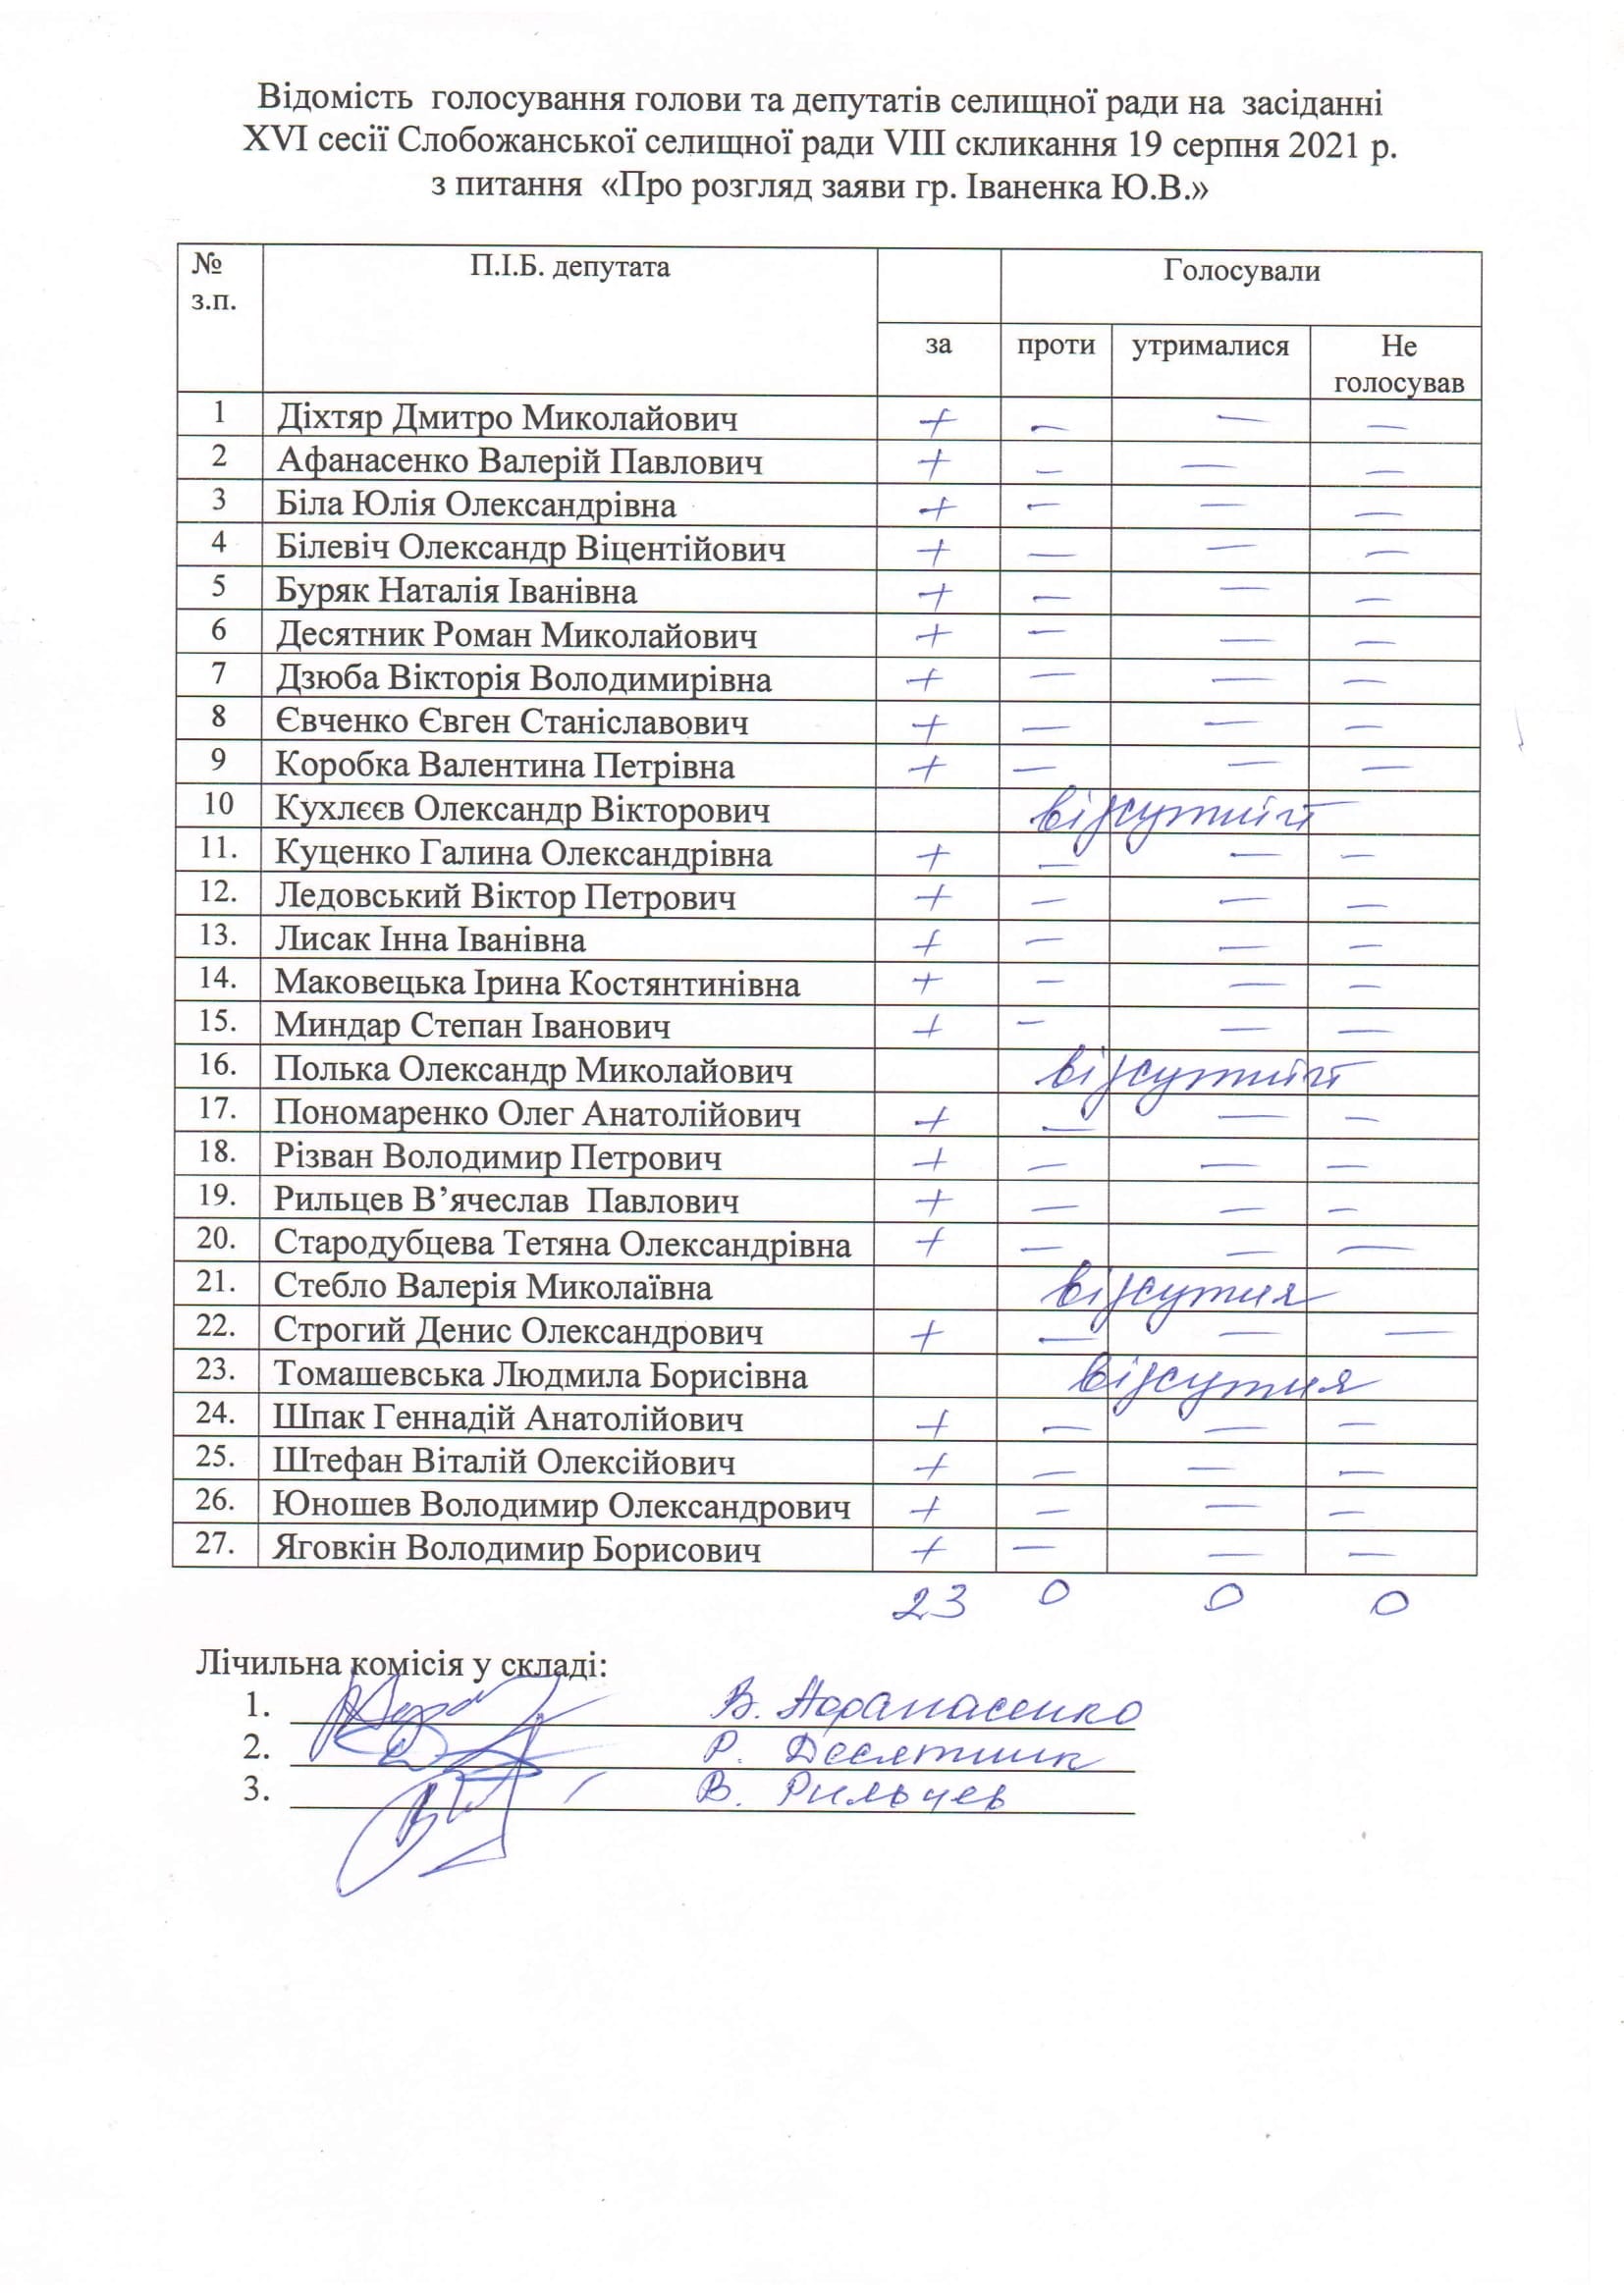 Відомість голосування голови та депутатів селищної ради на засіданні
XVI сесії Слобожанської селищної ради VIII скликання 19 серпня 2021 р.
з питання «Про розгляд заяви гр. Іваненка Ю.В.»
№ з.п. П.І.Б. депутата Голосували
за проти утрималися Не голосував
1 Діхтяр Дмитро Миколайович + – – –
2 Афанасенко Валерій Павлович + – – –
3 Біла Юлія Олександрівна + – – –
4 Білевіч Олександр Віцентійович + – – –
5 Буряк Наталія Іванівна + – – –
6 Десятник Роман Миколайович + – – –
7 Дзюба Вікторія Володимирівна + – – –
8 Євченко Євген Станіславович + – – –
9 Коробка Валентина Петрівна + – – –
10 Кухлєєв Олександр Вікторович відсутній
11. Куценко Галина Олександрівна + – – –
12. Ледовський Віктор Петрович + – – –
13. Лисак Інна Іванівна + – – –
14. Маковецька Ірина Костянтинівна + – – –
15. Миндар Степан Іванович + – – –
16. Полька Олександр Миколайович відсутній
17. Пономаренко Олег Анатолійович + – – –
18. Різван Володимир Петрович + – – –
19. Рильцев В’ячеслав Павлович + – – –
20. Стародубцева Тетяна Олександрівна + – – –
21. Стебло Валерія Миколаївна відсутня
22. Строгий Денис Олександрович + – – –
23. Томашевська Людмила Борисівна відсутня
24. Шпак Геннадій Анатолійович + – – –
25. Штефан Віталій Олексійович + – – –
26. Юношев Володимир Олександрович + – – –
27. Яговкін Володимир Борисович + – – –
23 0 0 0
Лічильна комісія у складі:
1. В. Афанасенко
2. Р. Десятник
3. В. Рильцев